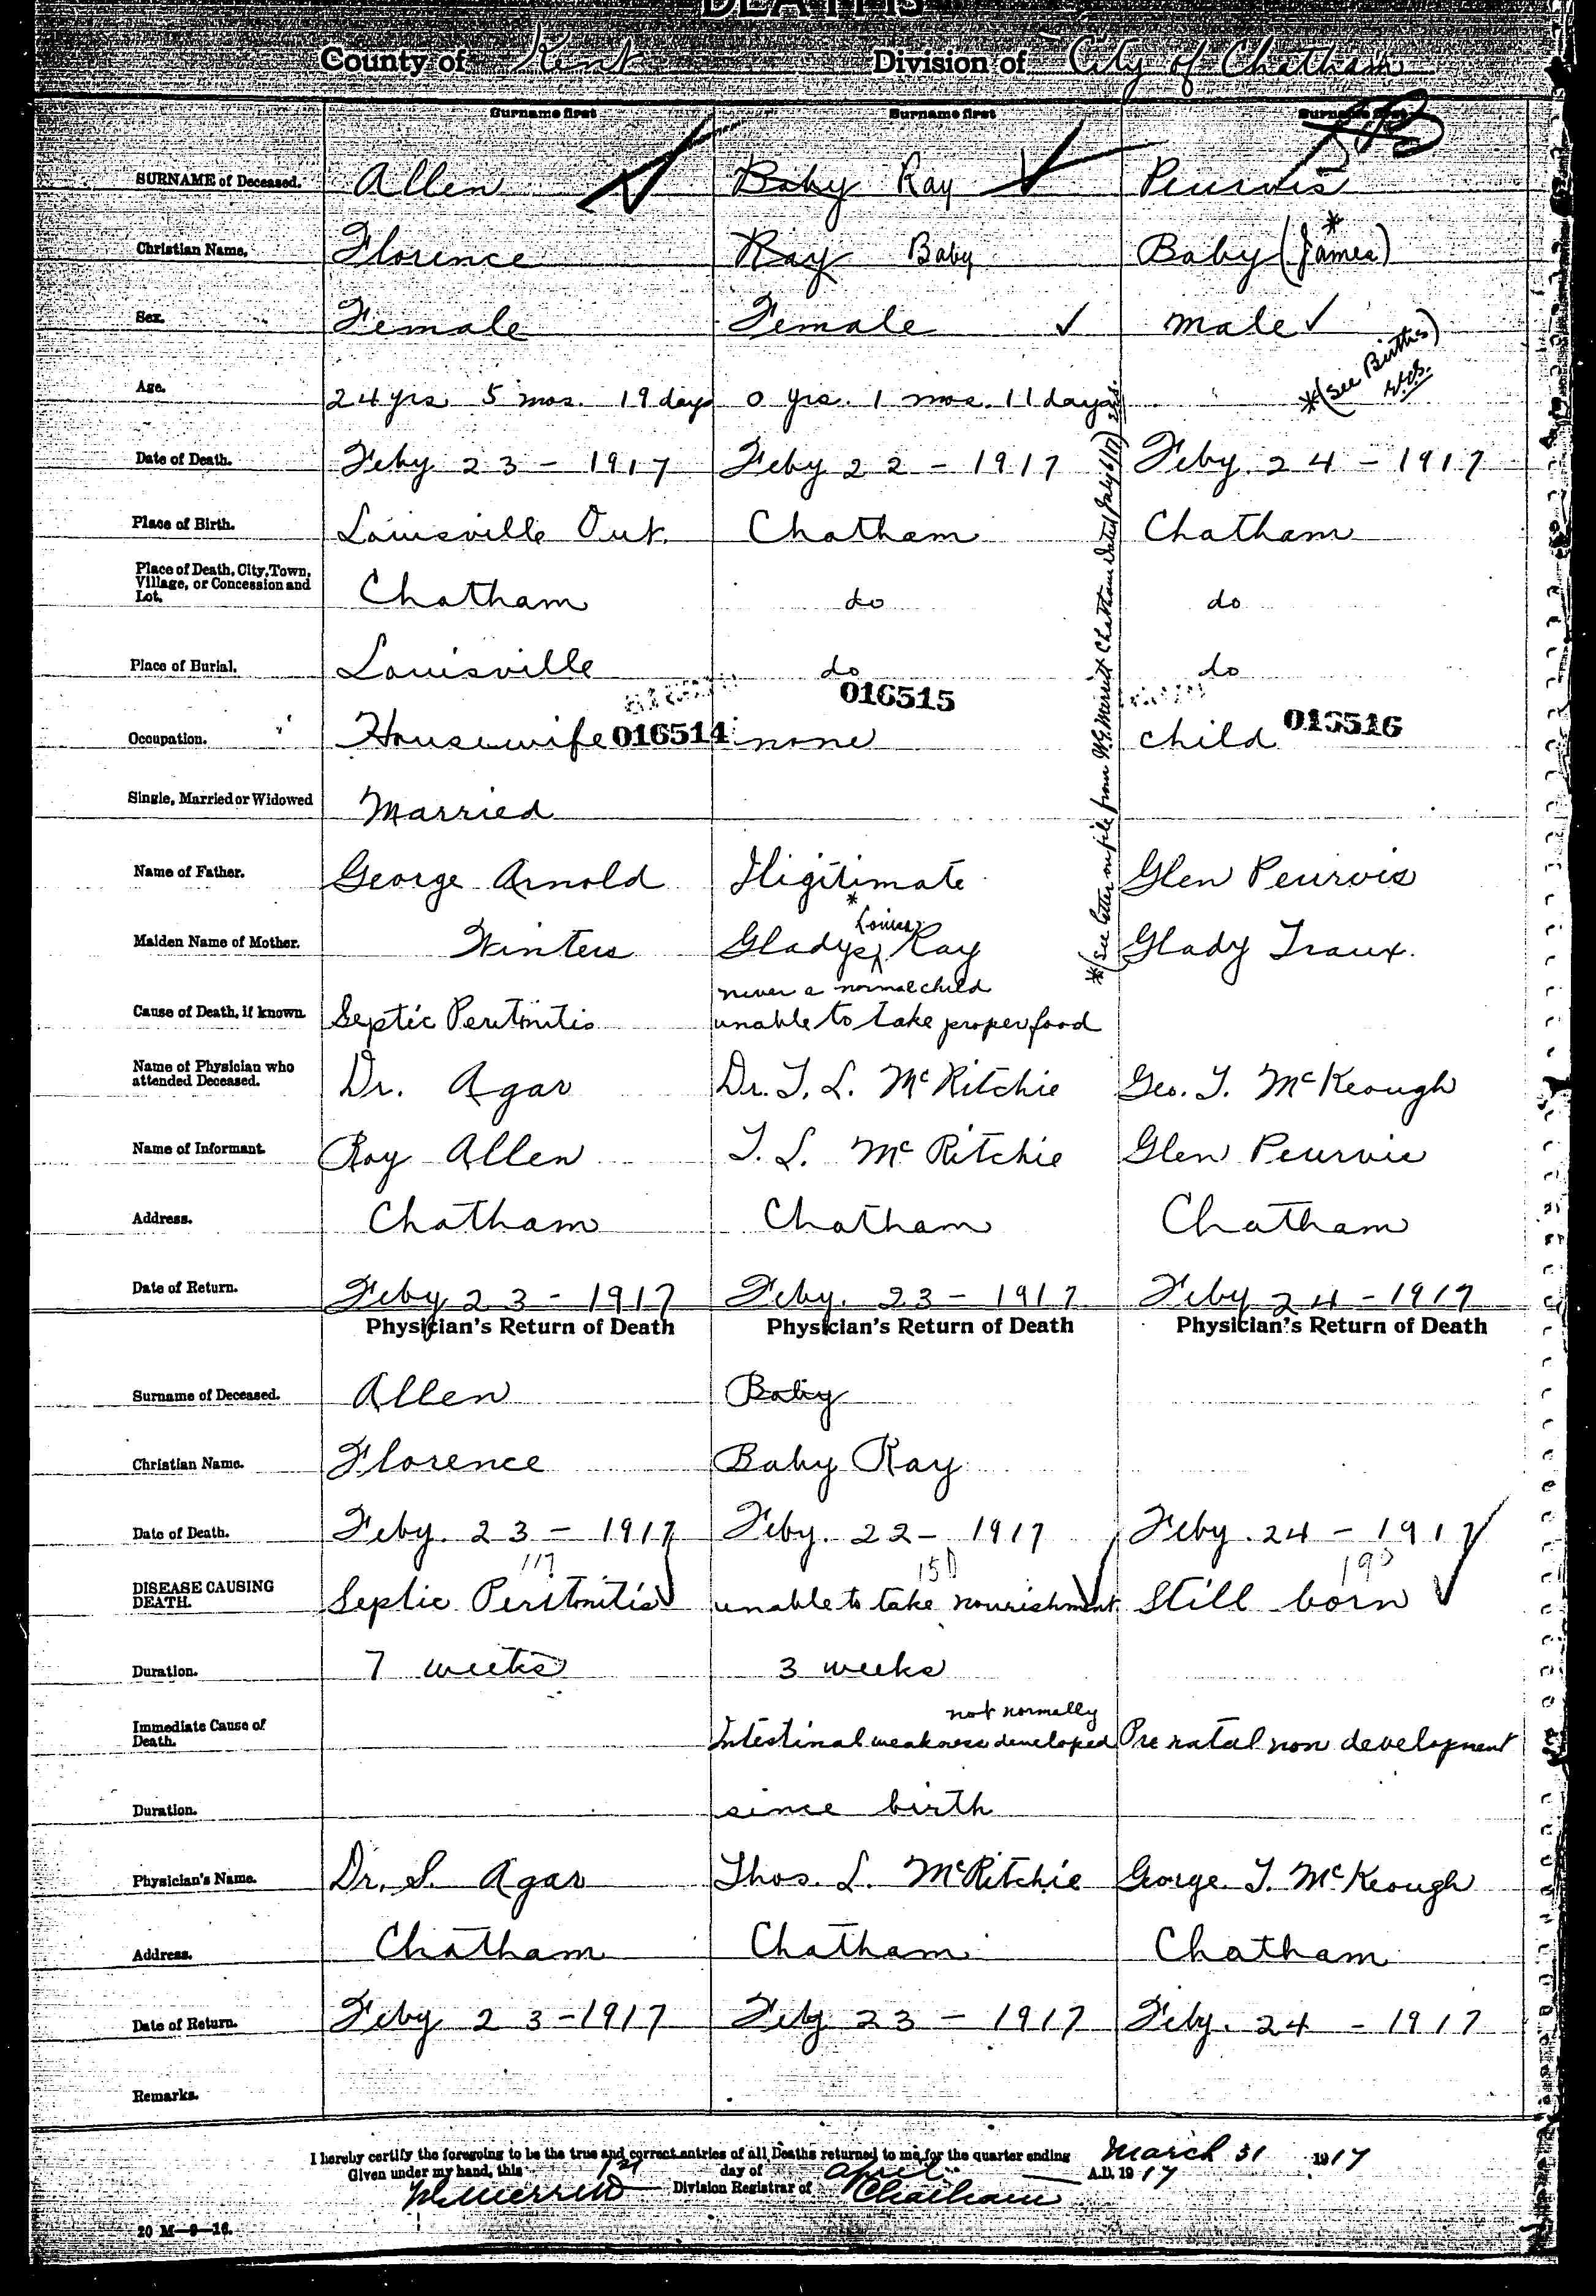 DEATHS
County of Kent Division of City of Chatham
Surname first Surname first Surname first
SURNAME of Deceased. Allen Baby Ray Peurvis
Christian Name. Florence Ray Baby Baby (James) *
Sex. Female Female male
*(see Births)
Age. 24 yrs 5 mos. 19 days 0 yrs. 1 mos. 11 days
Date of Death. Feby 23 - 1917 Feby 22 - 1917 Feby. 24 - 1917
Place of Birth. Louisville Ont. Chatham Chatham
Place of Death, City, Town, Village, or Concession and Lot. Chatham do do
Place of Burial. Louisville do do
016514 016515 016516
Occupation. Housewife none child
Single, Married or Widowed Married
Name of Father. George Arnold Illigitimate Glen Peurvis
Maiden Name of Mother. Winters Gladys * Louisa Ray Glady Traux.
*(see letter on file from W.G. Merritt Chatham dated July 6/17)
Cause of Death, if known. Septic Peritonitis never a normal child unable to take proper food
Name of Physician who attended Deceased. Dr. Agar Dr. T. L. McRitchie Geo. T. McKeough
Name of Informant. Roy Allen T. L. McRitchie Glen Peurvis
Address. Chatham Chatham Chatham
Date of Return. Feby 23 - 1917 Feby. 23 - 1917 Feby 24 - 1917
Physician's Return of Death Physician's Return of Death Physician's Return of Death
Surname of Deceased. Allen Baby
Christian Name. Florence Baby Ray
Date of Death. Feby. 23 - 1917 Feby. 22 - 1917 Feby. 24 - 1917
117
DISEASE CAUSING DEATH. Septic Peritonitis unable to take nourishment Still born
Duration. 7 weeks 3 weeks
Immediate Cause of Death. Intestinal weakness not normally developed Pre natal non development
Duration. since birth
Physician's Name. Dr. S. Agar Thos. L. McRitchie George T. McKeough
Address. Chatham Chatham Chatham
Date of Return. Feby 23 - 1917 Feby 23 - 1917 Feby. 24 - 1917
Remarks.
I hereby certify the foregoing to be the true and correct entries of all Deaths returned to me for the quarter ending March 31 1917
Given under my hand, this 1st day of April A.D. 1917
Merritt Division Registrar of Chatham
20 M-9-16.